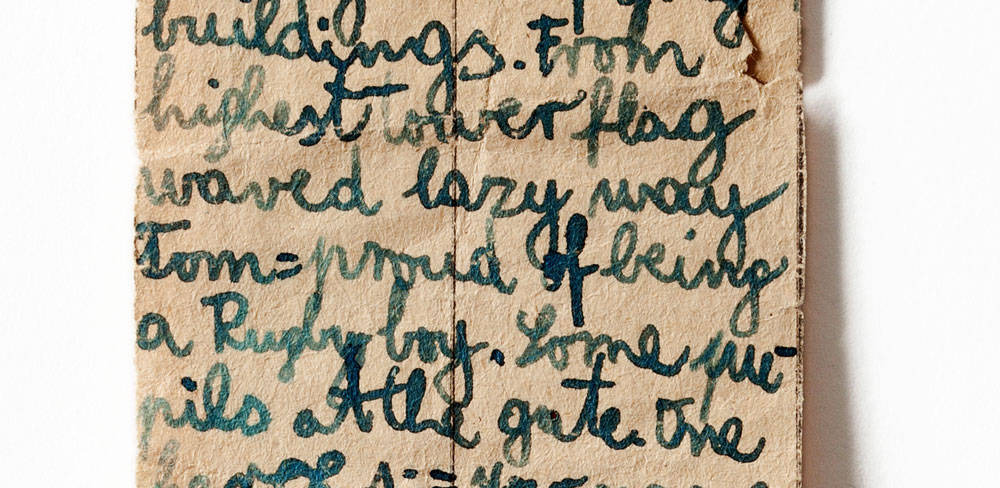 buildings. From
highest tower flag
waved lazy way
Tom = proud of being
a Rugby boy. Some pu-
pils at the gate. One